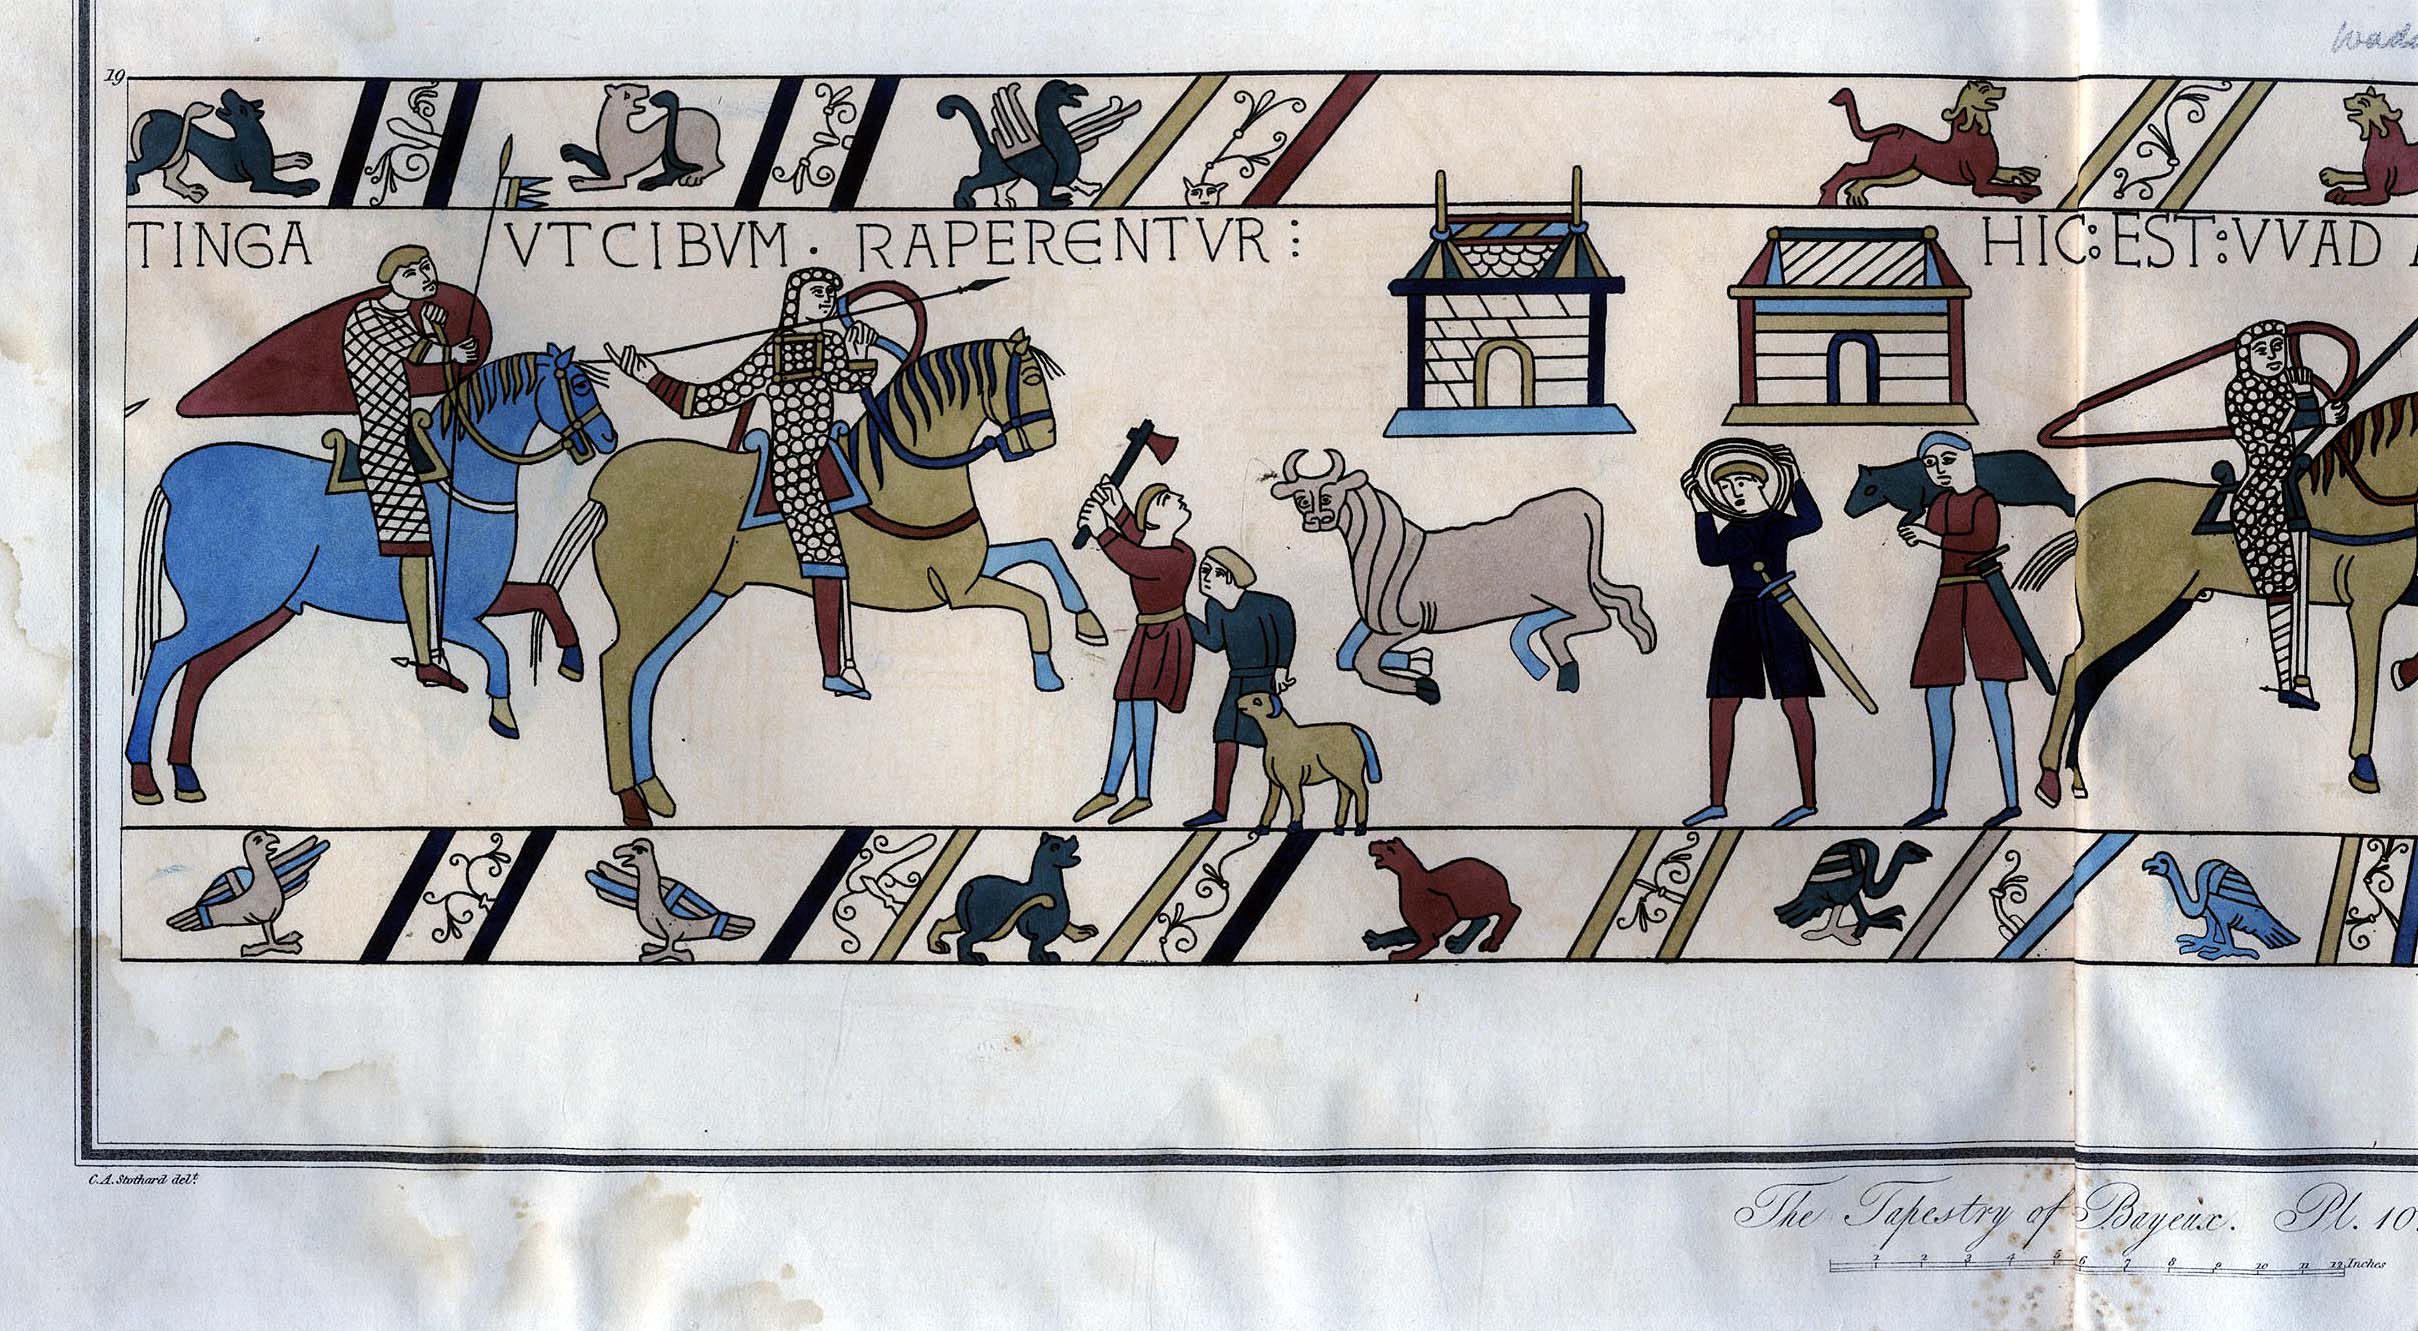 19
TINGA VT CIBVM · RAPERENTVR : HIC : EST : VVAD
C.A. Stothard delt.
The Tapestry of Bayeux. Pl. 10.
1 2 3 4 5 6 7 8 9 10 11 12 Inches